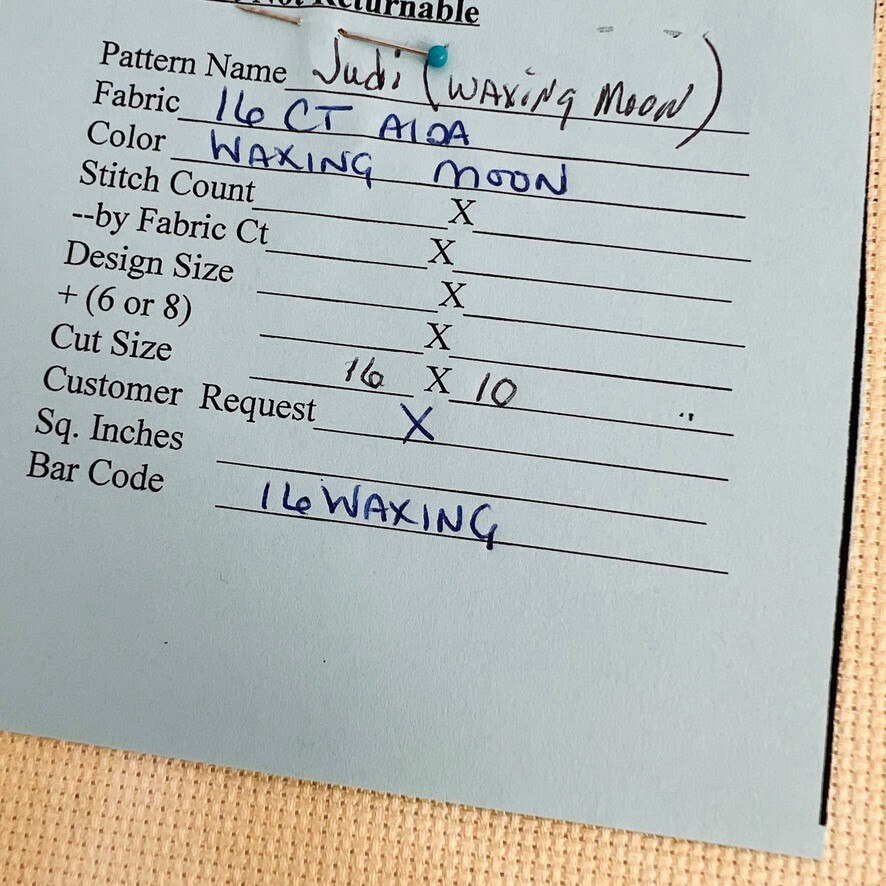 Not Returnable
Pattern Name Judi (WAXING MOON)
Fabric 16 CT AIDA
Color WAXING MOON
Stitch Count X
--by Fabric Ct X
Design Size X
+ (6 or 8) X
Cut Size 16 X 10
Customer Request X
Sq. Inches
Bar Code 16WAXING